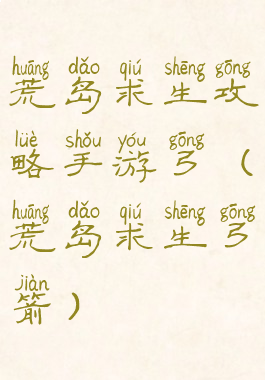 huāng dǎo qiú shēng gōng
荒岛求生攻
lüè shǒu yóu gōng
略手游弓（
huāng dǎo qiú shēng gōng
荒岛求生弓
jiàn
箭）